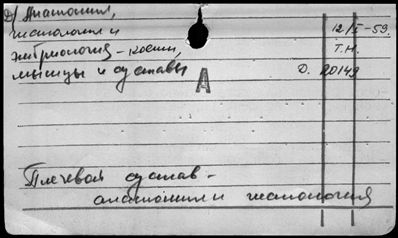 Д/ Анатомия, 12/I-59.
гистология и Т.Н.
эмбриология - кости,
мышцы и суставы О. 20149
А
Плечевой сустав -
анатомия и гистология